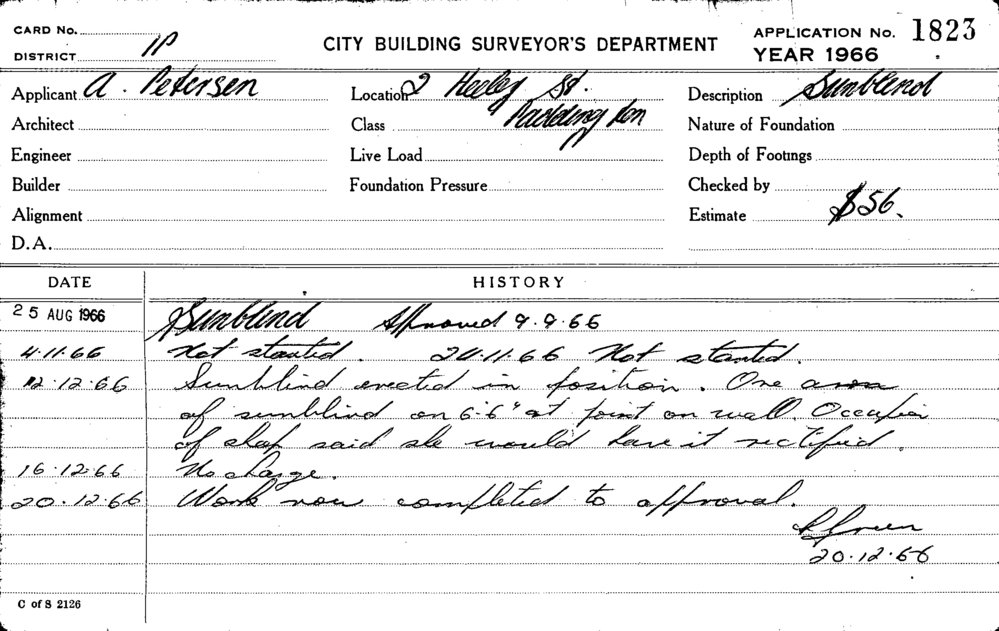 CARD No.
DISTRICT 1P
CITY BUILDING SURVEYOR'S DEPARTMENT
APPLICATION No. 1823
YEAR 1966
Applicant A. Petersen
Location 2 Heeley St.
Description Sunblind
Architect
Class Paddington
Nature of Foundation
Engineer
Live Load
Depth of Footings
Builder
Foundation Pressure
Checked by
Alignment
Estimate $56.
D.A.
DATE HISTORY
25 AUG 1966 Sunblind Approved 9.9.66
4.11.66 Not started. 24.11.66 Not started.
12.12.66 Sunblind erected in position. One
of sunblind on 6'-6" at point on wall. Occupier
of said she would have it rectified.
16.12.66 No change.
20.12.66 Work now completed to approval.
Green
20.12.66
C of S 2126